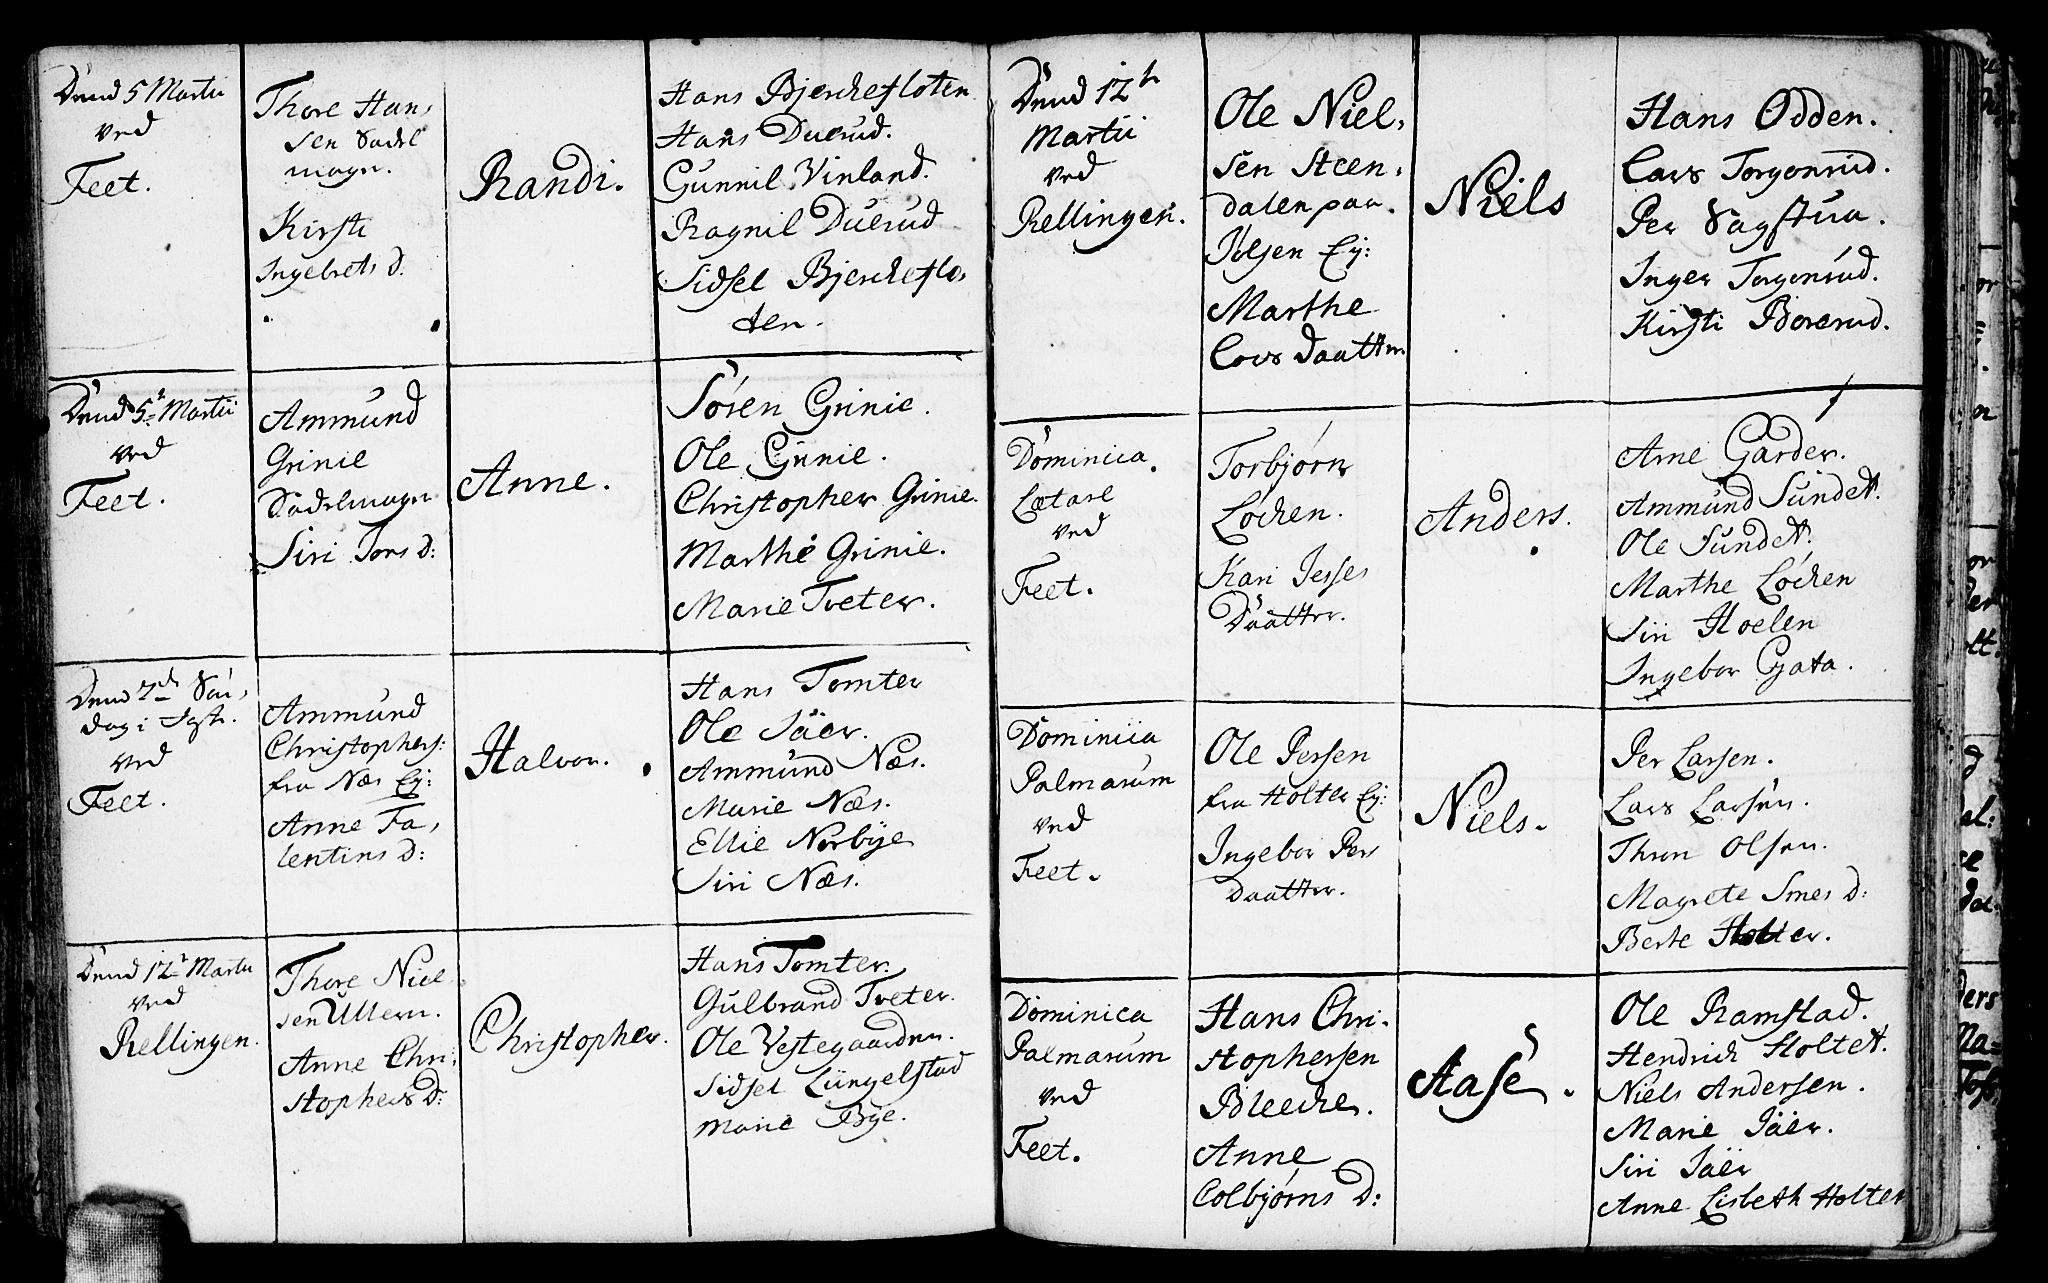 Dend 5 Martii
ved
Feet.
Thore Han,
sen Sadel
magr.
Kirsti
Ingebrets d.
Randi.
Hans Bjerchefloten
Hans Duerud.
Gunnil Vinland.
Ragnil Duerud
Sidsel Bjercheflo,
ten.
Dend 5t Martii
ved
Feet.
Ammund
Grinie
Sadelmagr
Siri Tors d:
Anne.
Søren Grinie.
Ole Grinie.
Christopher Grinie.
Marthe Grinie.
Marie Tveter.
Dend 2den Søn,
dag i
ved
Feet.
Ammund
Christophers:
fra Næs Ey:
Anne Fa,
lentins d:
Halvor.
Hans Tomter
Ole Jäer.
Ammund Næs.
Marie Næs.
Ellie Norbye
Siri Næs.
Dend 12t Martii
ved
Rellingen.
Thore Niel
sen Ullern.
Anne Chri,
stophers D:
Christopher.
Hans Tomter.
Gulbrand Tveter.
Ole Vestegaarden.
Sidsel Lüngelstad
Marie Bye.
Dend 12t
Martii
ved
Rellingen.
Ole Niel,
sen Steen,
dalen paa
Ey:
Marthe
Lars Daatter
Niels
Hans Odden.
Lars Torgonrud.
Per Sagstua.
Inger Torgonrud.
Kirsti Borerud.
Dominica
Lætare
ved
Feet.
Torbjørn
Løchen.
Kari Jesses
Daatter.
Anders.
Arne Garder.
Ammund Sundet.
Ole Sundet.
Marthe Løchen
Siri Hoelen
Ingebor Gata.
Dominica
Palmarum
ved
Feet.
Ole Persen
fra Holter Ey:
Ingebor Pers
Daatter.
Niels.
Per Larsen.
Lars Larsen.
Thron Olsen.
Magrete Smes D:
Berte Holter.
Dominica
Palmarum
ved
Feet.
Hans Chri,
stophersen
Bleeche.
Anne
Colbjørns D:
Aase.
Ole Ramstad.
Hendrich Holtet.
Niels Andersen.
Marie Jäer.
Siri Jäer
Anne Lisbeth Holter